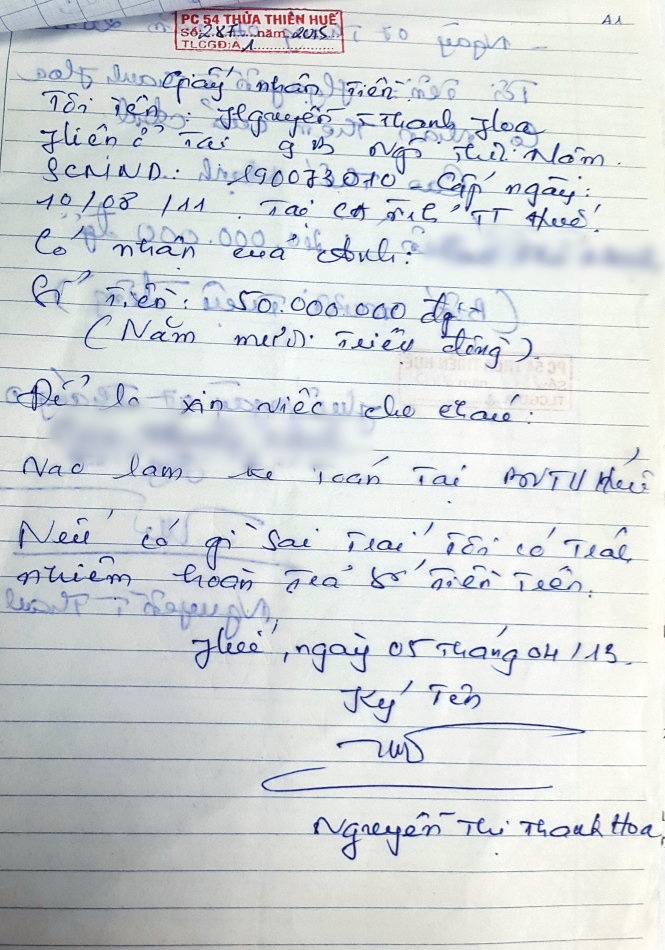 A1
PC 54 THỪA THIÊN HUẾ
Số: 287 năm 2015
TLCGĐ: A1
Giấy nhận Tiền
Tôi Tên: Nguyễn T Thanh Hoa
Hiện ở Tại Ngô Thời Nhậm.
SCMND: 190073010 Cấp ngày:
10/08/11. Tại CA TT Huế.
Có nhận của Anh:
Số Tiền: 50.000.000 đg
(Năm mươi Triệu đồng).
Để lo xin việc cho cháu:
Vào làm kế toán Tại Huế
Nếu có gì Sai Trái Tôi có Trách
nhiệm hoàn Trả số Tiền Trên.
Huế, ngày 05 Tháng 04/13.
Ký Tên
Nguyễn Thị Thanh Hoa